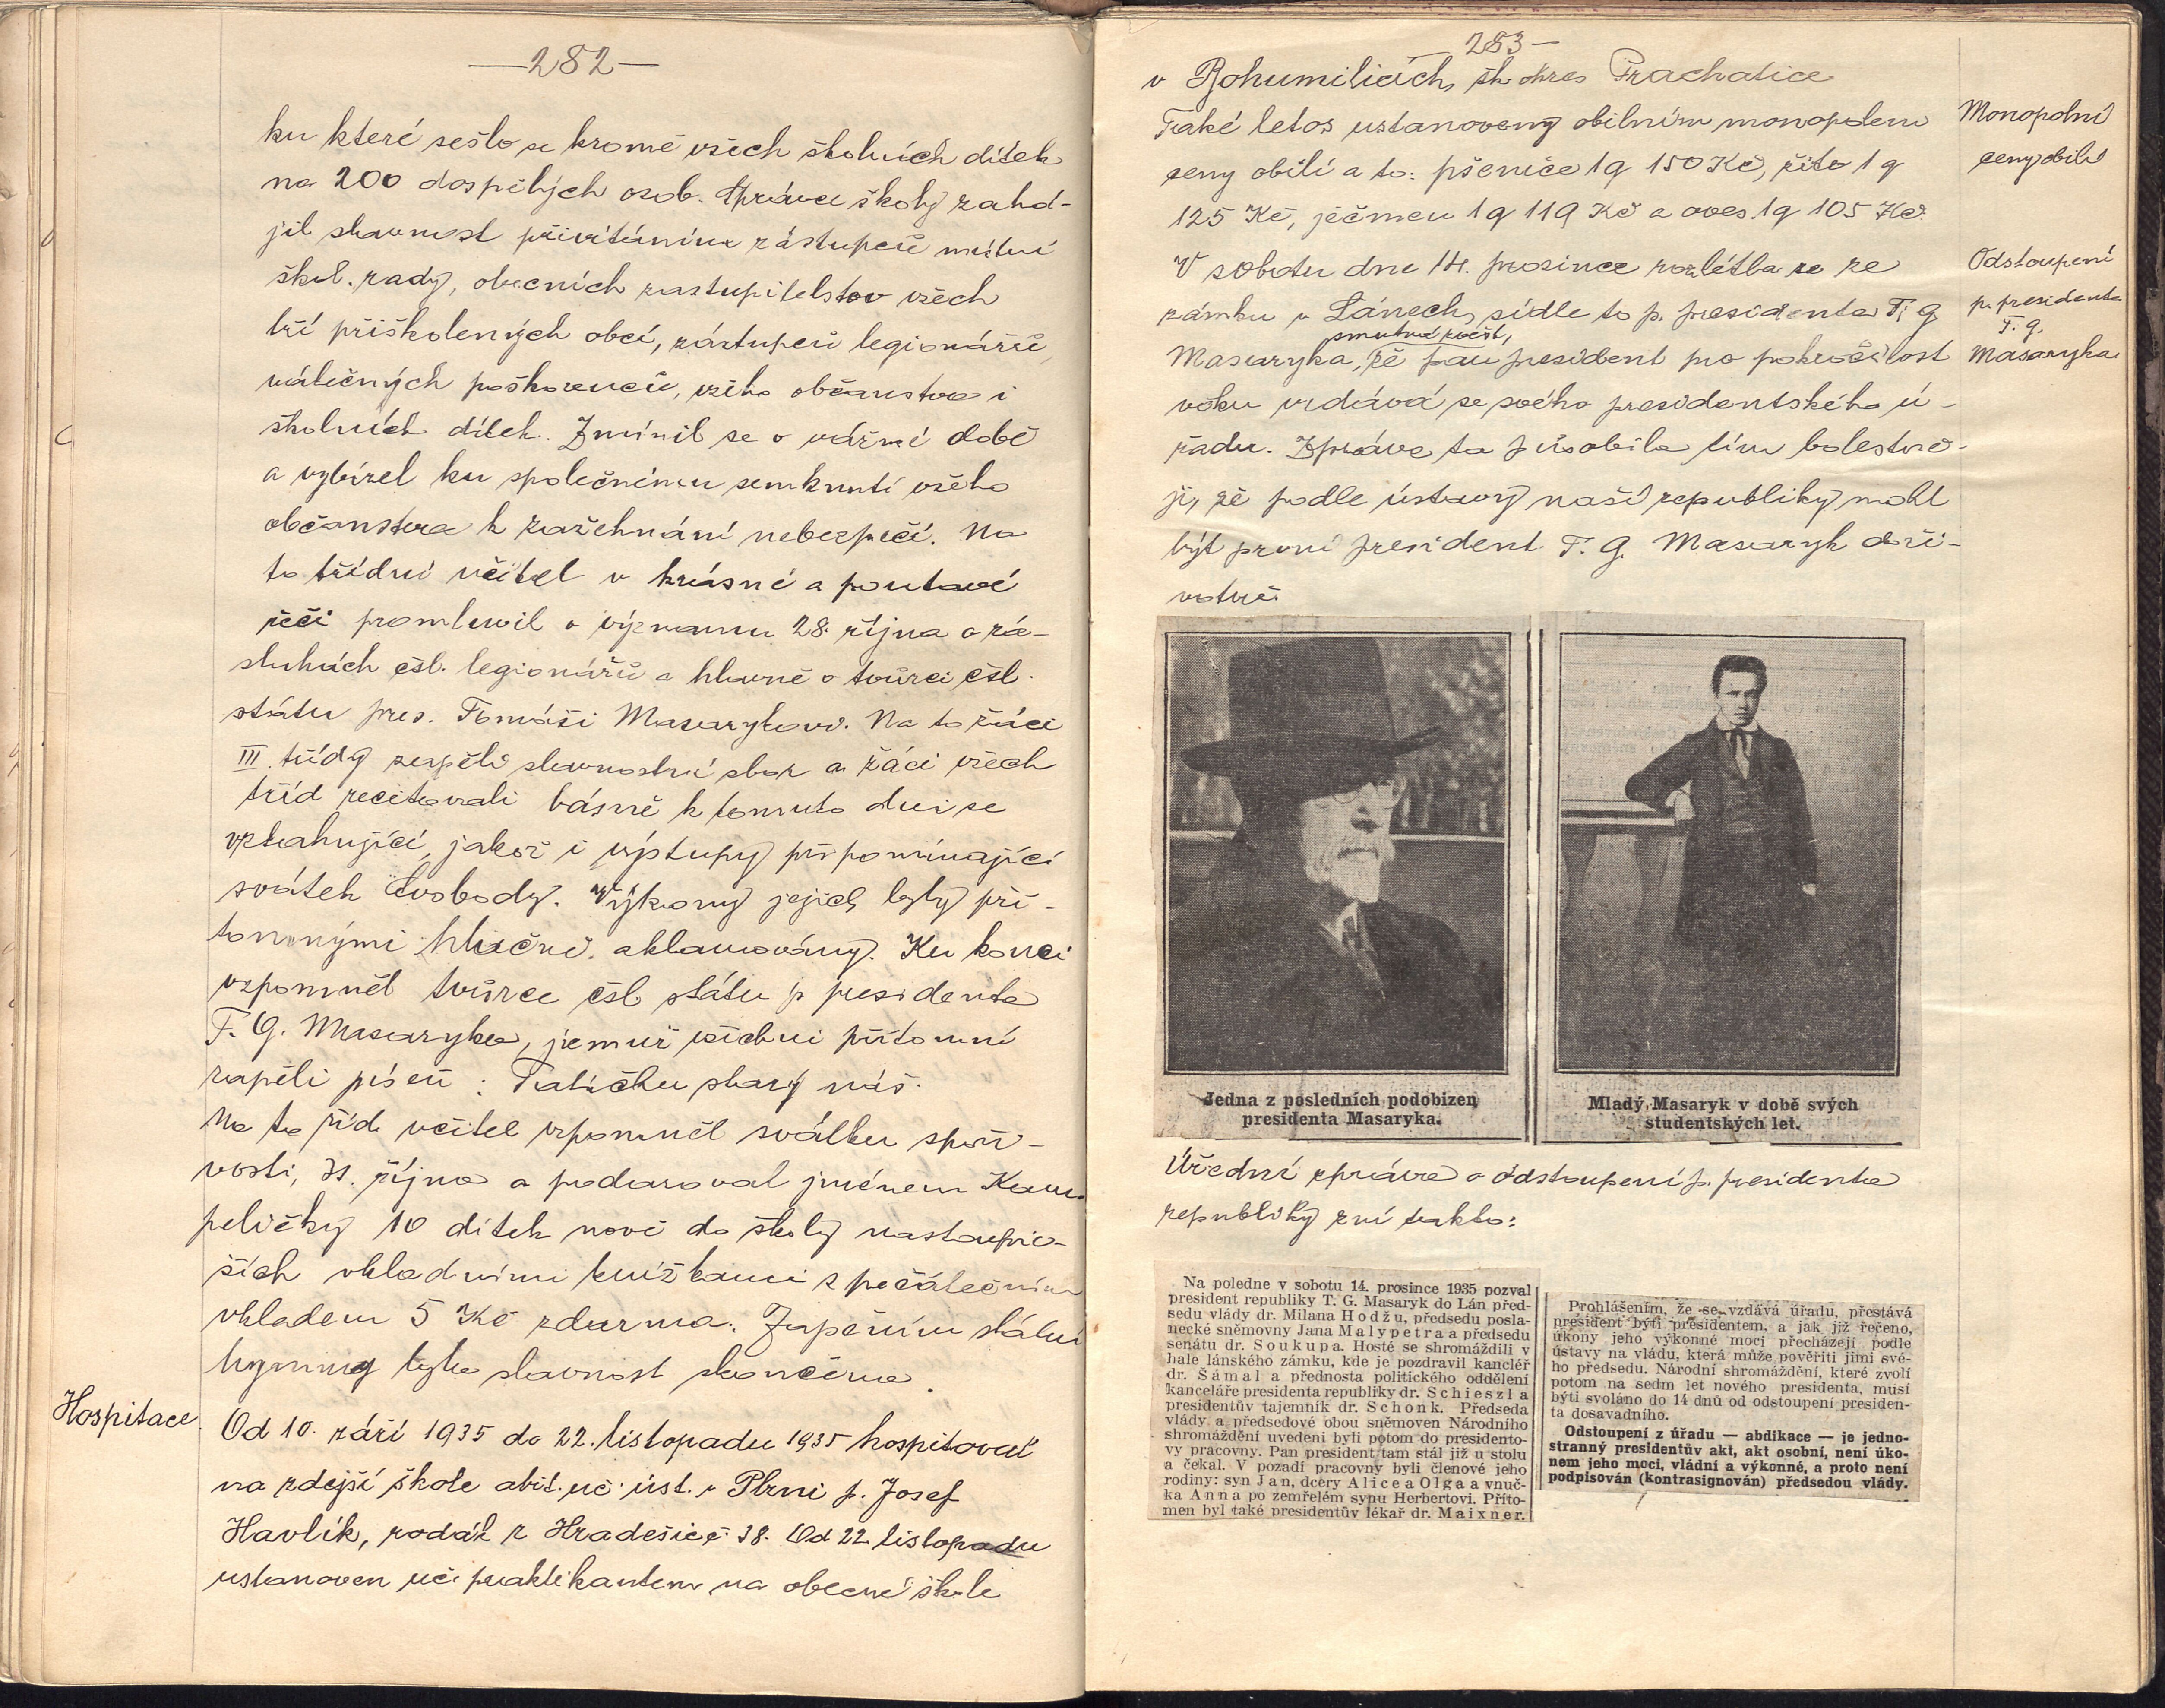 —282—
ku které sešlo se kromě všech školních dítek
na 200 dospělých osob. Správce školy zahá-
jil slavnost přivítáním zástupců místní
škol. rady, obecních zastupitelstev všech
tří přiškolených obcí, zástupců legionářů,
válečných poškozenců, všeho občanstva i
školních dítek. Zmínil se o vážné době
a vybízel ku společnému semknutí všeho
občanstva k zažehnání nebezpečí. Na
to třídní učitel v krásné a poutavé
řeči promluvil o významu 28. října o zá-
sluhách čsl. legionářů a hlavně o tvůrci čsl.
státu pres. Tomáši Masarykovi. Na to žáci
III. třídy zapěli slavnostní sbor a žáci všech
tříd recitovali básně k tomuto dni se
vztahující, jakož i výstupy připomínající
svátek Svobody. Výkony jejich byly pří-
tomnými hlučně aklamovány. Ku konci
vzpomněl tvůrce čsl státu p presidenta
T. G. Masaryka, jemuž všichni přítomní
zapěli píseň: Tatíčku starý náš.
Na to říd. učitel vzpomněl svátku spoři-
vosti, 31. října a podaroval jménem Kam-
peličky 10 dítek nově do školy nastoupiv-
ších vkladními knížkami s počátečním
vkladem 5 Kč zdarma. Zapěním státní
hymny byla slavnost skončena.
Hospitace
Od 10. září 1935 do 22. listopadu 1935 hospitoval
na zdejší škole abit. uč. úst. v Plzni p. Josef
Havlík, rodák z Hradešic č. 38. Od 22. listopadu
ustanoven uč. praktikantem na obecné škole
283—
v Bohumilicích, šk. okres Prachatice
Také letos ustanoveny obilním monopolem
Monopolní
ceny obilí a to: pšenice 1q 150 Kč, žito 1q
ceny obilí
125 Kč, ječmen 1q 119 Kč a oves 1q 105 Kč.
V sobotu dne 14. prosince rozlétla se ze
Odstoupení
zámku v Lánech, sídle to p. presidenta T. G.
p. presidenta
T. G.
smutná zvěst,
Masaryka, že pan president pro pokročilost
Masaryka
věku vzdává se svého presidentského ú-
řadu. Zpráva ta působila tím bolestně-
ji, že podle ústavy naší republiky mohl
být první president T. G. Masaryk doži-
votně.
Jedna z posledních podobizen
presidenta Masaryka.
Mladý Masaryk v době svých
studentských let.
Úřední zpráva o odstoupení p. presidenta
republiky zní takto:
Na poledne v sobotu 14. prosince 1935 pozval
president republiky T. G. Masaryk do Lán před-
sedu vlády dr. Milana Hodžu, předsedu posla-
necké sněmovny Jana Malypetra a předsedu
senátu dr. Soukupa. Hosté se shromáždili v
hale lánského zámku, kde je pozdravil kancléř
dr. Šámal a přednosta politického oddělení
kanceláře presidenta republiky dr. Schieszl a
presidentův tajemník dr. Schonk. Předseda
vlády a předsedové obou sněmoven Národního
shromáždění uvedeni byli potom do presidento-
vy pracovny. Pan president tam stál již u stolu
a čekal. V pozadí pracovny byli členové jeho
rodiny: syn Jan, dcery Alice a Olga a vnuč-
ka Anna po zemřelém synu Herbertovi. Příto-
men byl také presidentův lékař dr. Maixner.
Prohlášením, že se vzdává úřadu, přestává
president býti presidentem, a jak již řečeno,
úkony jeho výkonné moci přecházejí podle
ústavy na vládu, která může pověřiti jimi své-
ho předsedu. Národní shromáždění, které zvolí
potom na sedm let nového presidenta, musí
býti svoláno do 14 dnů od odstoupení presiden-
ta dosavadního.
Odstoupení z úřadu — abdikace — je jedno-
stranný presidentův akt, akt osobní, není úko-
nem jeho moci, vládní a výkonné, a proto není
podpisován (kontrasignován) předsedou vlády.